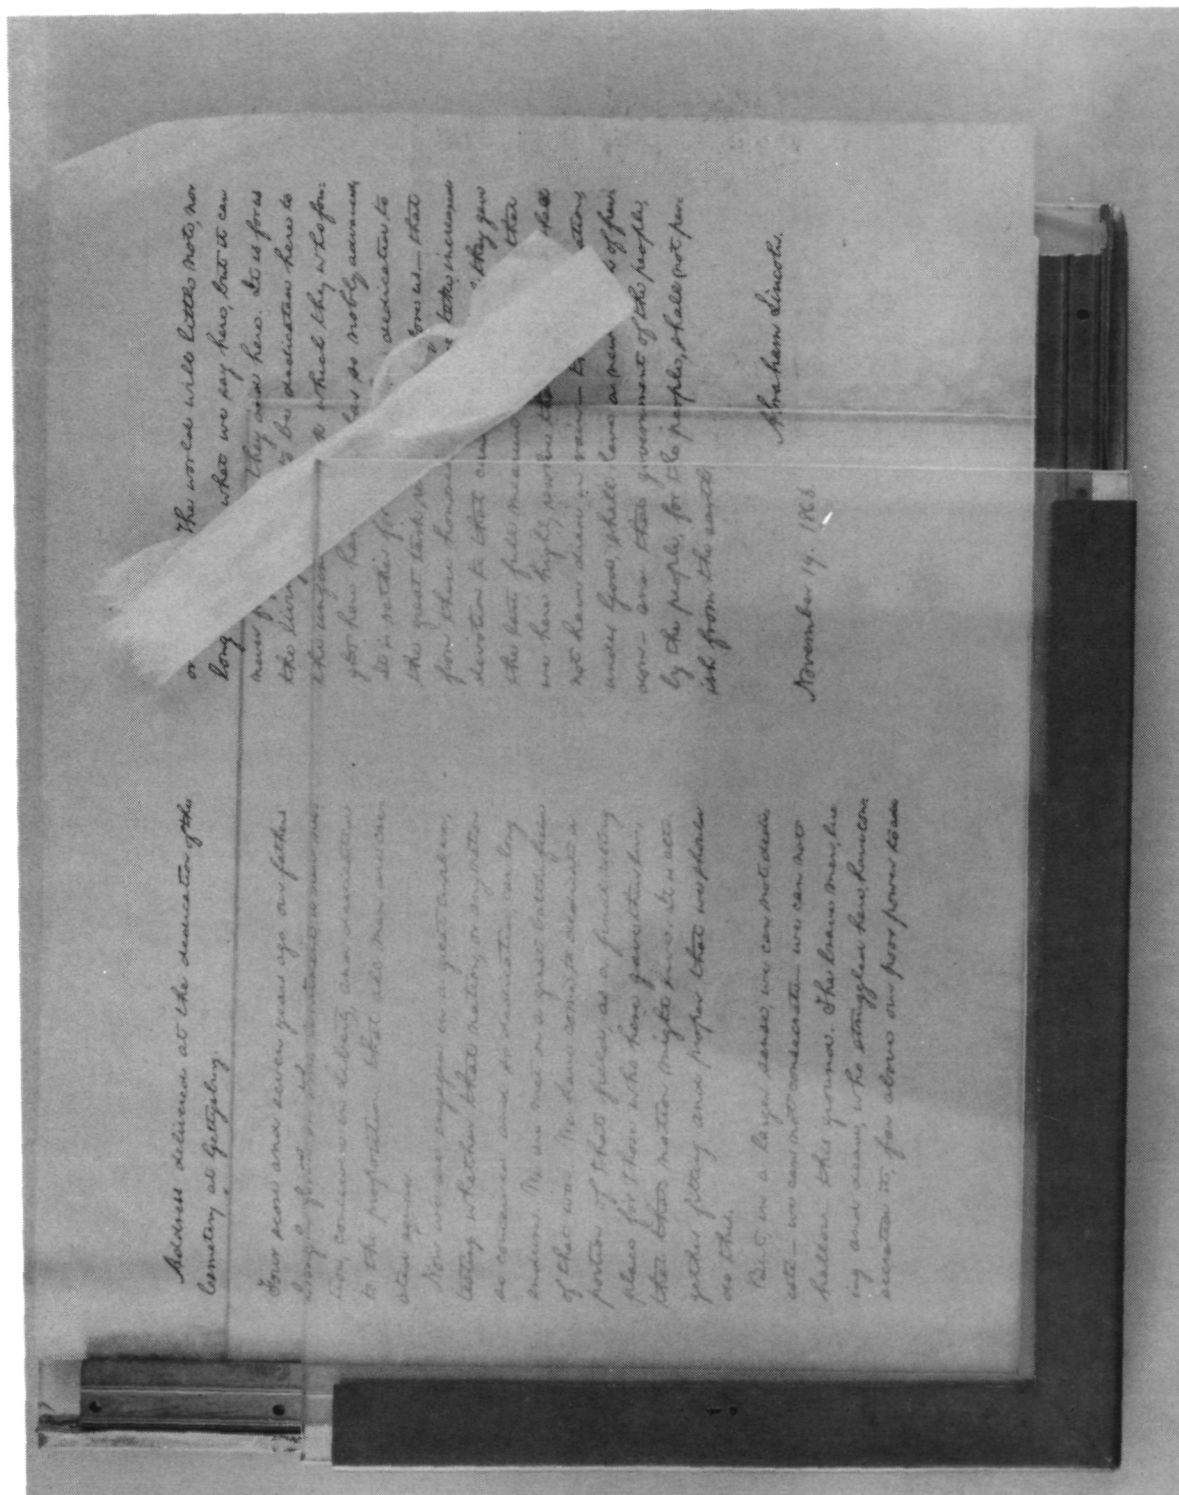 Address delivered at the dedication of the
Cemetery at Gettysburg.
Four score and seven years ago our fathers
brought forth on this continent, a new na-
tion, conceived in Liberty, and dedicated
to the proposition that all men are cre-
ated equal.
Now we are engaged in a great civil war,
testing whether that nation, or any nation
so conceived and so dedicated, can long
endure. We are met on a great battle-field
of that war. We have come to dedicate a
portion of that field, as a final resting
place for those who here gave their lives
that that nation might live. It is alto-
gether fitting and proper that we should
do this.
But, in a larger sense, we can not dedi-
cate— we can not consecrate— we can not
hallow— this ground. The brave men, liv-
ing and dead, who struggled here, have con-
secrated it, far above our poor power to add
or The world will little note, nor
long what we say here, but it can
never they did here. It is for us
the living to be dedicated here to
the unfin which they who fou-
ght here ha has so nobly advanced.
It is rather for dedicated to
the great task re fore us— that
from these honore take increased
devotion to that cau they gave
the last full measure that
we here highly resolve tha shall
not have died in vain— ation,
under God, shall have a new birth of free-
dom— and that government of the people,
by the people, for the people, shall not per-
ish from the earth.
Abraham Lincoln.
November 19. 1863.